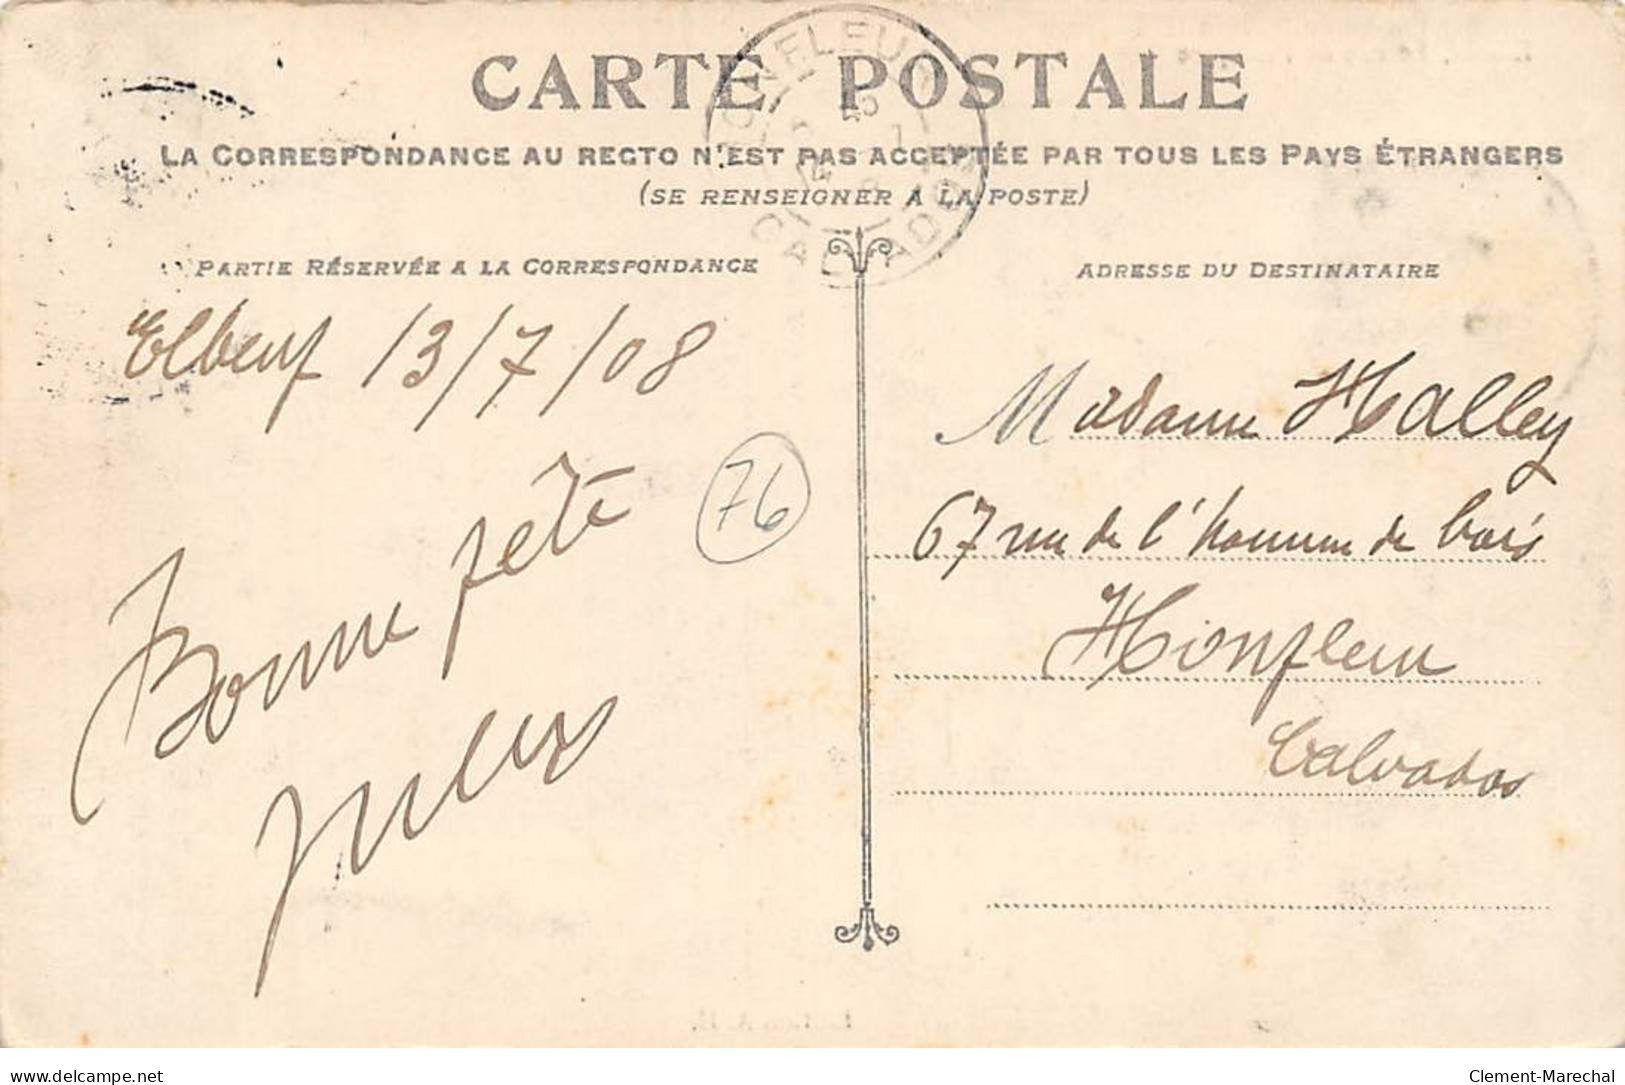 CARTE POSTALE
HONFLEUR
CALVADOS
LA CORRESPONDANCE AU RECTO N'EST PAS ACCEPTÉE PAR TOUS LES PAYS ÉTRANGERS
(SE RENSEIGNER A LA POSTE)
PARTIE RÉSERVÉE A LA CORRESPONDANCE
ADRESSE DU DESTINATAIRE
Elbeuf 13/7/08
76
Bonne fête
Jules
Madame Halley
67 rue de l'homme de bois
Honfleur
Calvados
delcampe.net
Clement-Marechal